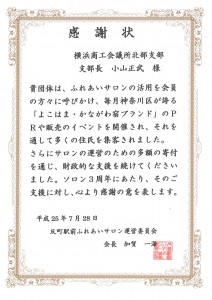 感謝状
横浜商工会議所北部支部
支部長 小山正武 様
貴団体は、ふれあいサロンの活用を会員
の方々に呼びかけ、毎月神奈川区が誇る
「よこはま・かながわ宿ブランド」のP
Rや販売のイベントを開催され、それを
通して多くの住民を集客されました。
さらにサロンの運営のための多額の寄付
を通じ、財政的な支援を続けてください
ました。ソロン3周年にあたり、そのご
支援に対し、心より感謝の意を表します。
平成25年7月28日
反町駅前ふれあいサロン運営委員会
会長 加賀 一